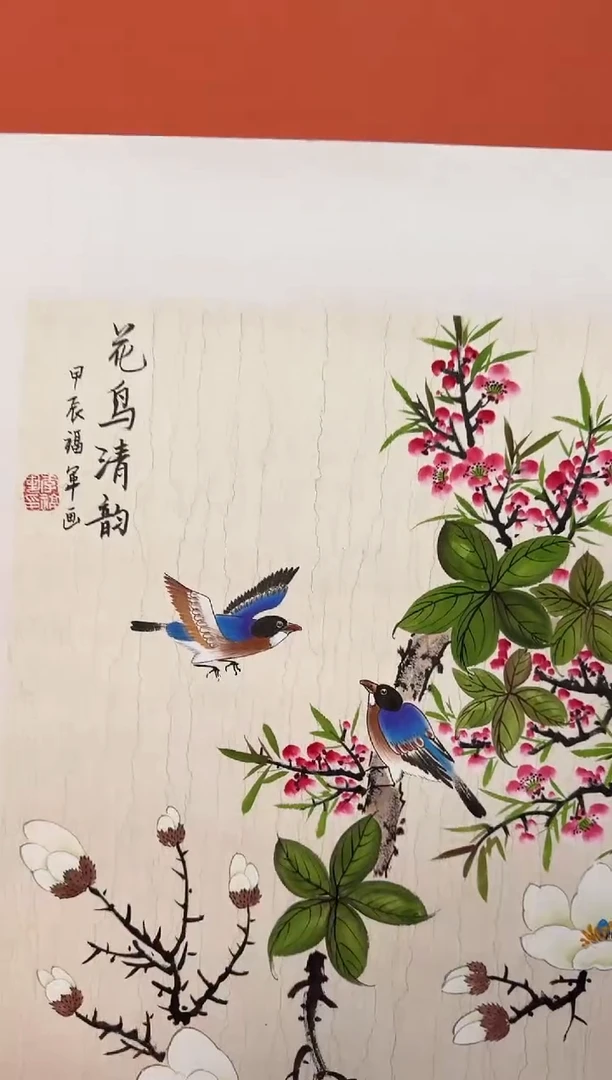 花鸟清韵
甲辰福军画